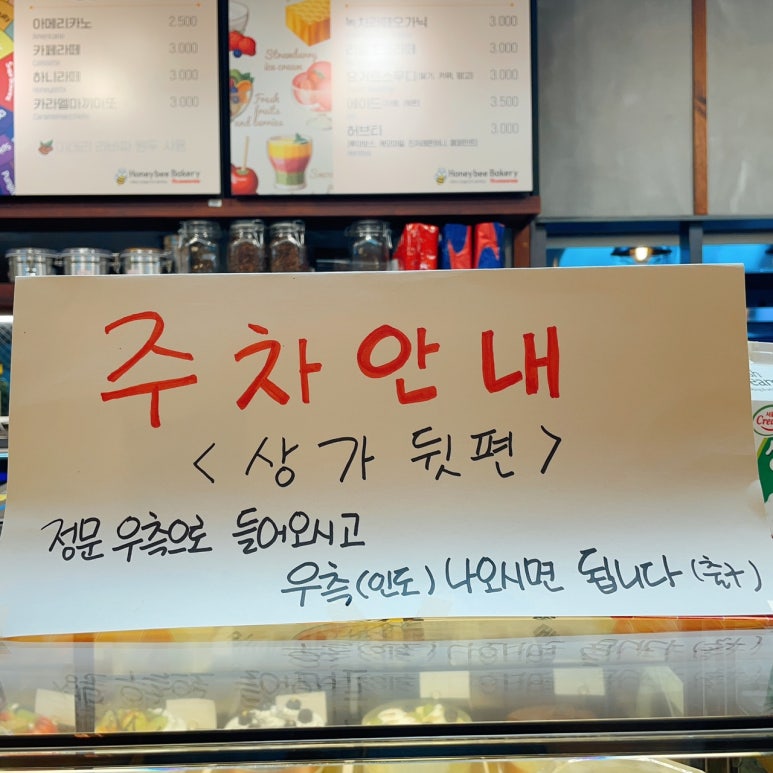 아메리카노 2.500
카페라떼 3.000
허니라떼 3.000
카라멜마끼아또 3.000
Strawberry
ice cream
Fresh
fruits
and berries
3.000
3.000
3.000
에이드 3.500
허브티 3.000
Honeybee Bakery
Honeybee Bakery
주차안내
<상가 뒷편>
정문 우측으로 들어오시고
우측(인도)나오시면 됩니다(출구)